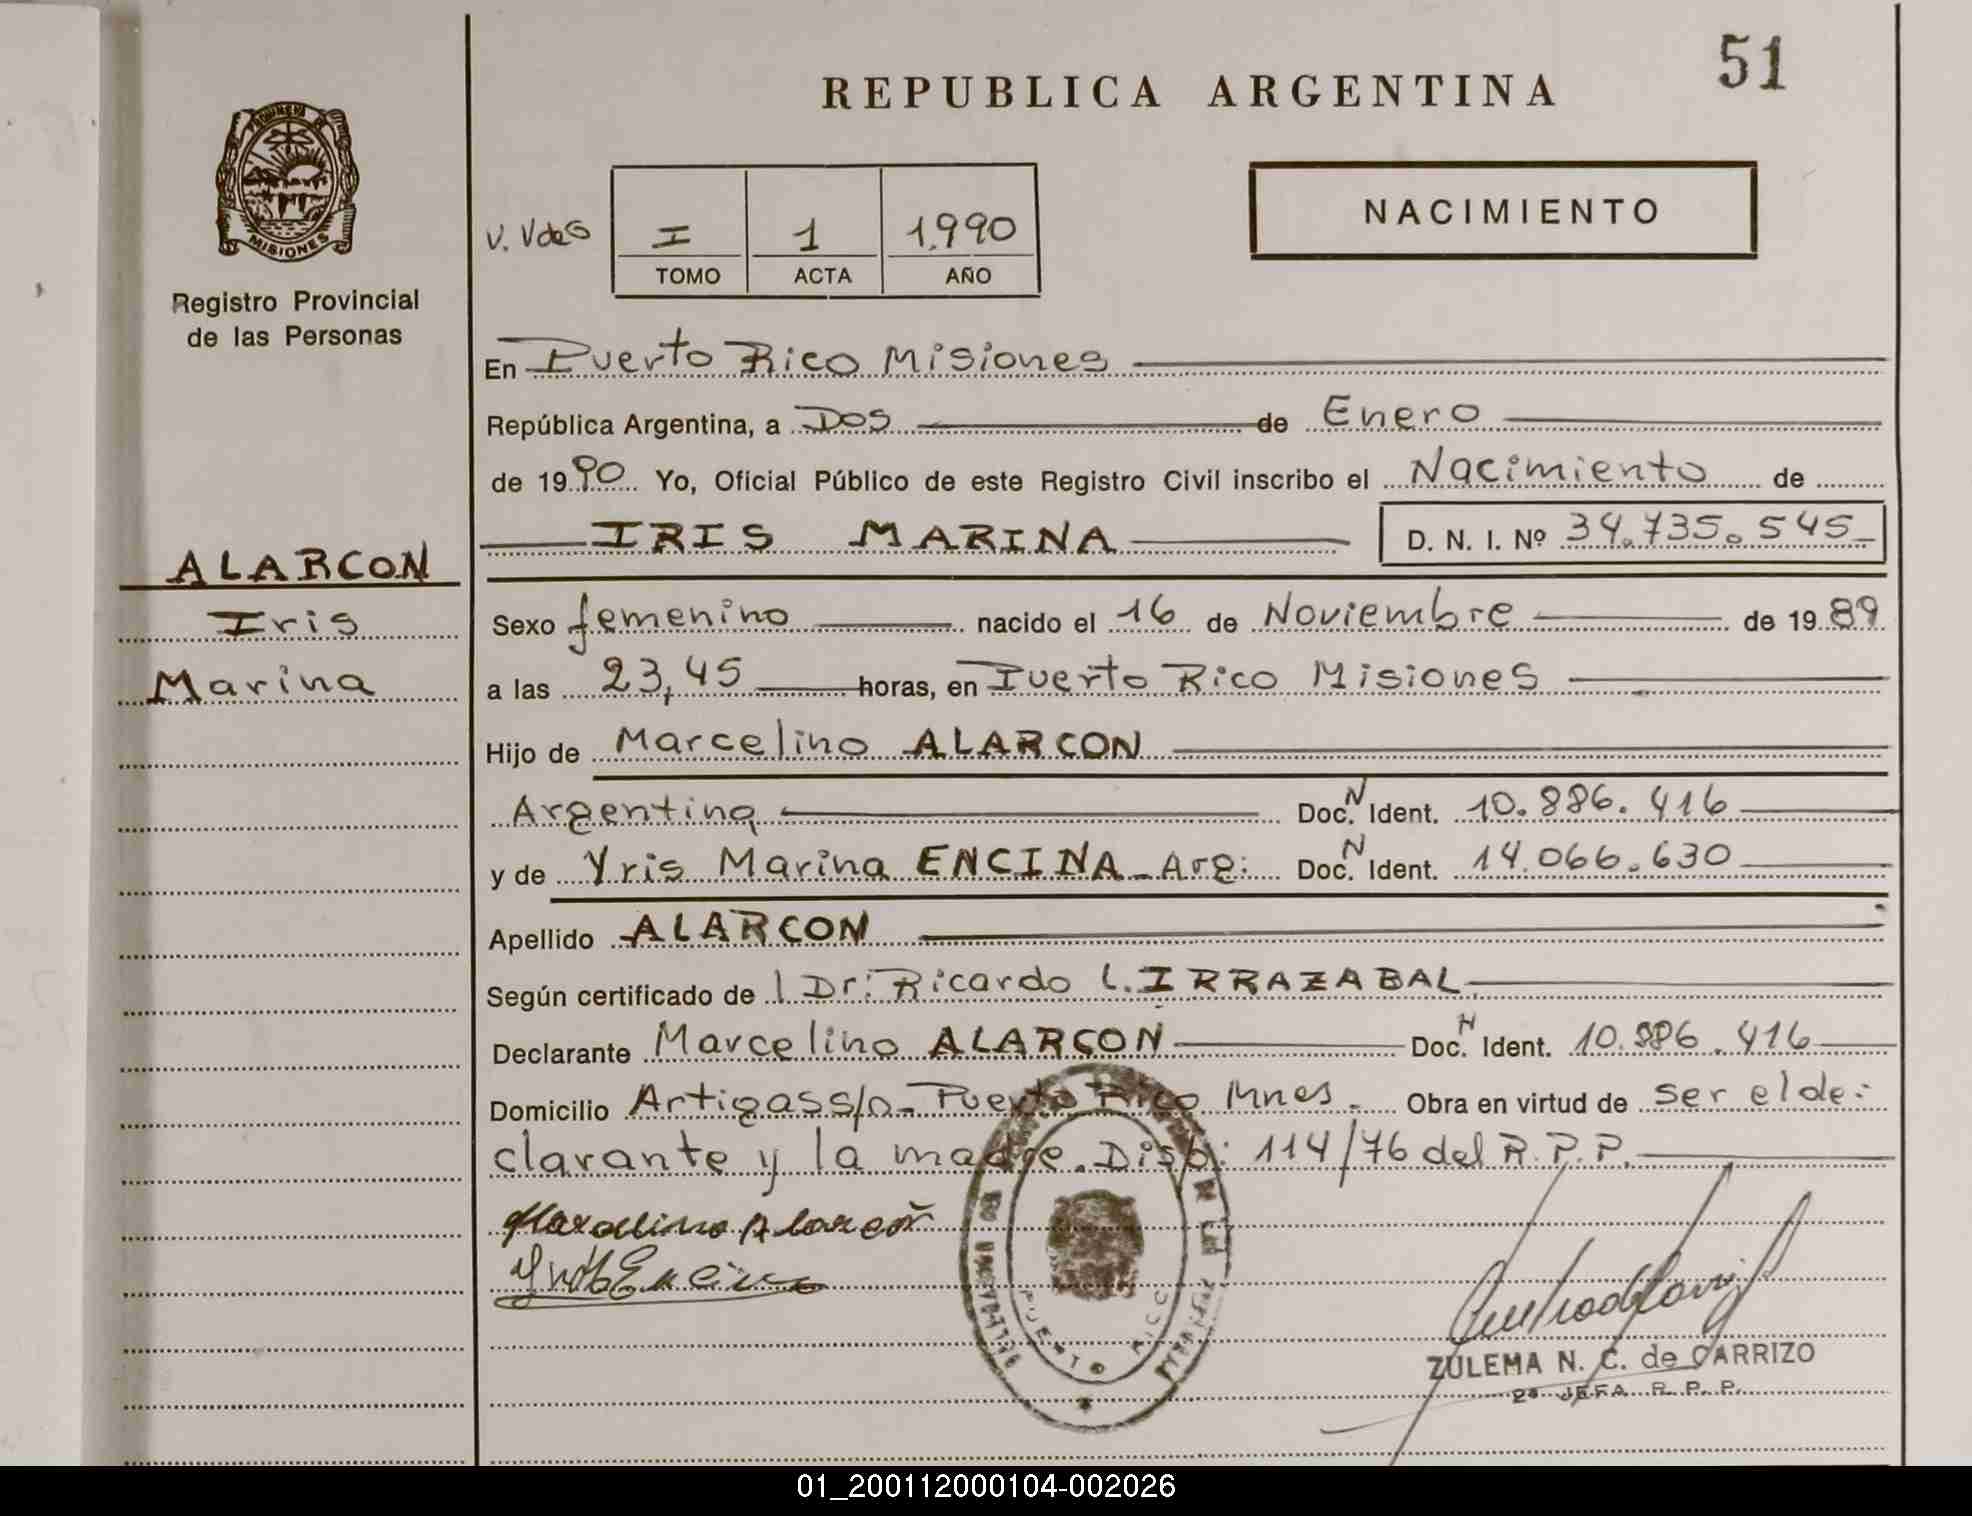 51
REPUBLICA ARGENTINA
NACIMIENTO
V. Vdes
I 1 1.990
TOMO ACTA AÑO
PROVINCIA DE
MISIONES
Registro Provincial
de las Personas
En Puerto Rico Misiones
República Argentina, a Dos de Enero
de 1990 Yo, Oficial Público de este Registro Civil inscribo el Nacimiento de
IRIS MARINA D. N. I. Nº 34.735.545
ALARCON
Iris
Marina
Sexo femenino nacido el 16 de Noviembre de 1989
a las 23,45 horas, en Puerto Rico Misiones
Hijo de Marcelino ALARCON
Argentina Doc. N. Ident. 10.886.416
y de Yris Marina ENCINA - Arg: Doc. N. Ident. 14.066.630
Apellido ALARCON
Según certificado de l Dr: Ricardo L. IRRAZABAL
Declarante Marcelino ALARCON Doc. N. Ident. 10.886.416
Domicilio Artigas s/n - Puerto Rico Mnes. Obra en virtud de ser el de-
clarante y la madre. Disp: 114/76 del R.P.P.
Marcelino Alarcon
PUERTO RICO
ZULEMA N. C. de CARRIZO
2ª JEFA R. P. P.
01_200112000104-002026